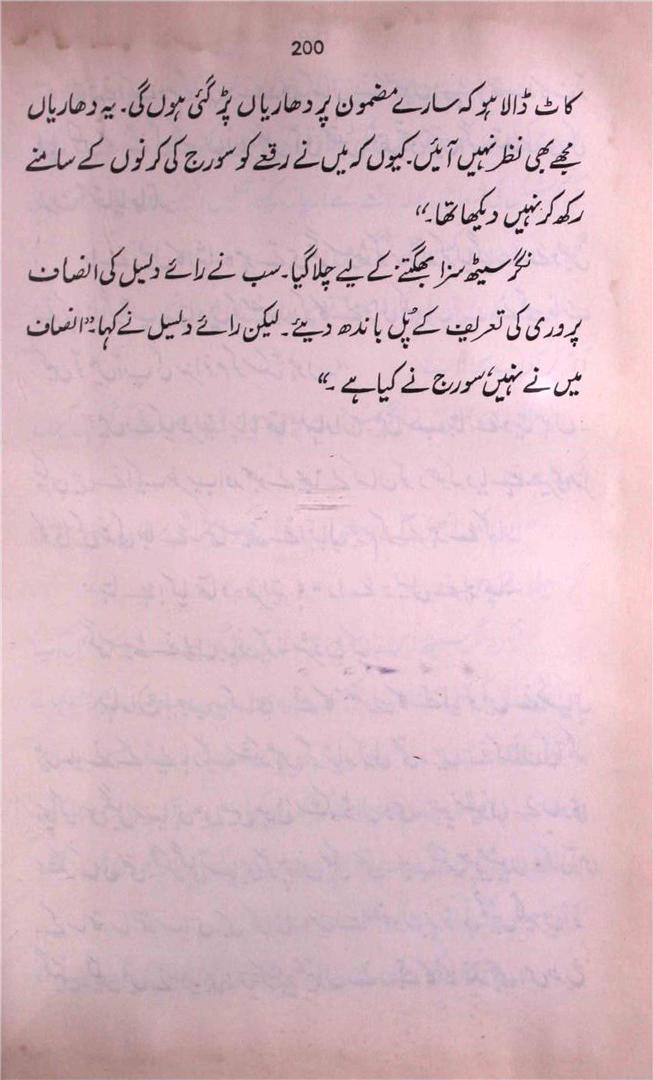 200
کاٹ ڈالا ہو کہ سارے مضمون پر دھاریاں پڑ گئی ہوں گی۔ یہ دھاریاں
مجھے بھی نظر نہیں آئیں۔ کیوں کہ میں نے رقعے کو سورج کی کرنوں کے سامنے
رکھ کر نہیں دیکھا تھا۔“
نگر سیٹھ سزا بھگتنے کے لیے چلا گیا۔ سب نے رائے دلیل کی انصاف
پروری کی تعریف کے پُل باندھ دیئے۔ لیکن رائے دلیل نے کہا۔ ”انصاف
میں نے نہیں، سورج نے کیا ہے۔“